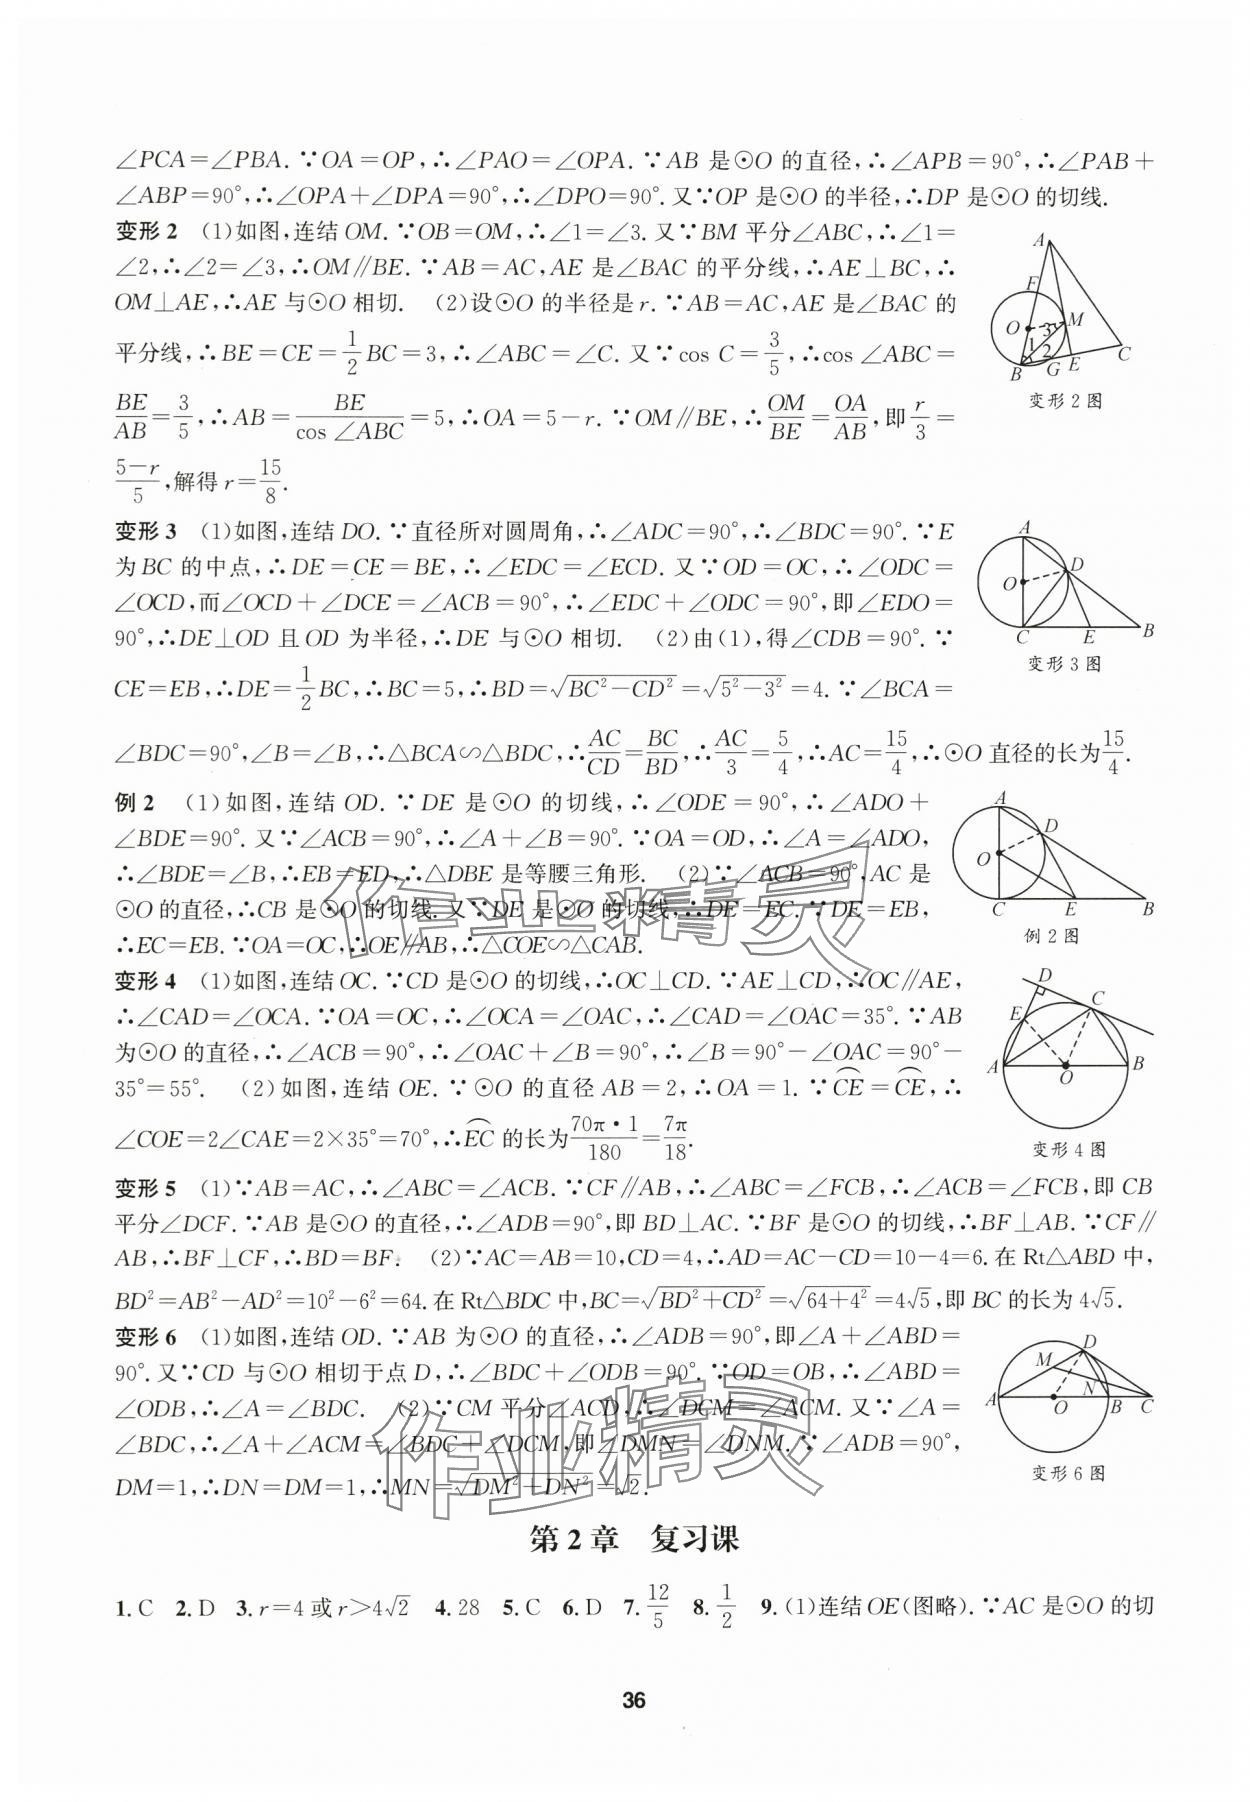 ∠PCA=∠PBA. ∵OA=OP,∴∠PAO=∠OPA. ∵AB 是⊙O 的直径,∴∠APB=90°,∴∠PAB+
∠ABP=90°,∴∠OPA+∠DPA=90°,∴∠DPO=90°. 又∵OP 是⊙O 的半径,∴DP 是⊙O 的切线.
变形 2 (1)如图,连结 OM. ∵OB=OM,∴∠1=∠3. 又∵BM 平分∠ABC,∴∠1=
∠2,∴∠2=∠3,∴OM∥BE. ∵AB=AC,AE 是∠BAC 的平分线,∴AE⊥BC,∴
OM⊥AE,∴AE 与⊙O 相切. (2)设⊙O 的半径是 r. ∵AB=AC,AE 是∠BAC 的
平分线,∴BE=CE=1/2BC=3,∴∠ABC=∠C. 又∵cos C=3/5,∴cos ∠ABC=
BE/AB=3/5,∴AB=BE/cos ∠ABC=5,∴OA=5-r. ∵OM∥BE,∴OM/BE=OA/AB,即 r/3=
(5-r)/5,解得 r=15/8.
A
F
O
3
M
1
2
B
G
E
C
变形 2 图
变形 3 (1)如图,连结 DO. ∵直径所对圆周角,∴∠ADC=90°,∴∠BDC=90°. ∵E
为 BC 的中点,∴DE=CE=BE,∴∠EDC=∠ECD. 又∵OD=OC,∴∠ODC=
∠OCD,而∠OCD+∠DCE=∠ACB=90°,∴∠EDC+∠ODC=90°,即∠EDO=
90°,∴DE⊥OD 且 OD 为半径,∴DE 与⊙O 相切. (2)由(1),得∠CDB=90°. ∵
CE=EB,∴DE=1/2BC,∴BC=5,∴BD=√(BC²-CD²)=√(5²-3²)=4. ∵∠BCA=
∠BDC=90°,∠B=∠B,∴△BCA∽△BDC,∴AC/CD=BC/BD,∴AC/3=5/4,∴AC=15/4,∴⊙O 直径的长为15/4.
A
D
O
C
E
B
变形 3 图
例 2 (1)如图,连结 OD. ∵DE 是⊙O 的切线,∴∠ODE=90°,∴∠ADO+
∠BDE=90°. 又∵∠ACB=90°,∴∠A+∠B=90°. ∵OA=OD,∴∠A=∠ADO,
∴∠BDE=∠B,∴EB=ED,∴△DBE 是等腰三角形. (2)∵∠ACB=90°,AC 是
⊙O 的直径,∴CB 是⊙O 的切线. 又∵DE 是⊙O 的切线,∴DE=EC. ∵DE=EB,
∴EC=EB. ∵OA=OC,∴OE∥AB,∴△COE∽△CAB.
A
D
O
C
E
B
例 2 图
变形 4 (1)如图,连结 OC. ∵CD 是⊙O 的切线,∴OC⊥CD. ∵AE⊥CD,∴OC∥AE,
∴∠CAD=∠OCA. ∵OA=OC,∴∠OCA=∠OAC,∴∠CAD=∠OAC=35°. ∵AB
为⊙O 的直径,∴∠ACB=90°,∴∠OAC+∠B=90°,∴∠B=90°-∠OAC=90°-
35°=55°. (2)如图,连结 OE. ∵⊙O 的直径 AB=2,∴OA=1. ∵⌒CE=⌒CE,∴
∠COE=2∠CAE=2×35°=70°,∴⌒EC 的长为 70π·1/180=7π/18.
D
C
E
A
O
B
变形 4 图
变形 5 (1)∵AB=AC,∴∠ABC=∠ACB. ∵CF∥AB,∴∠ABC=∠FCB,∴∠ACB=∠FCB,即 CB
平分∠DCF. ∵AB 是⊙O 的直径,∴∠ADB=90°,即 BD⊥AC. ∵BF 是⊙O 的切线,∴BF⊥AB. ∵CF∥
AB,∴BF⊥CF,∴BD=BF. (2)∵AC=AB=10,CD=4,∴AD=AC-CD=10-4=6. 在 Rt△ABD 中,
BD²=AB²-AD²=10²-6²=64. 在 Rt△BDC 中,BC=√(BD²+CD²)=√(64+4²)=4√5,即 BC 的长为 4√5.
变形 6 (1)如图,连结 OD. ∵AB 为⊙O 的直径,∴∠ADB=90°,即∠A+∠ABD=
90°. 又∵CD 与⊙O 相切于点 D,∴∠BDC+∠ODB=90°. ∵OD=OB,∴∠ABD=
∠ODB,∴∠A=∠BDC. (2)∵CM 平分∠ACD,∴∠DCM=∠ACM. 又∵∠A=
∠BDC,∴∠A+∠ACM=∠BDC+∠DCM,即∠DMN=∠DNM. ∵∠ADB=90°,
DM=1,∴DN=DM=1,∴MN=√(DM²+DN²)=√2.
D
M
N
A
O
B
C
变形 6 图
作业精灵
作业精灵
第 2 章 复习课
1. C 2. D 3. r=4 或 r>4√2 4. 28 5. C 6. D 7. 12/5 8. 1/2 9. (1)连结 OE(图略). ∵AC 是⊙O 的切
36